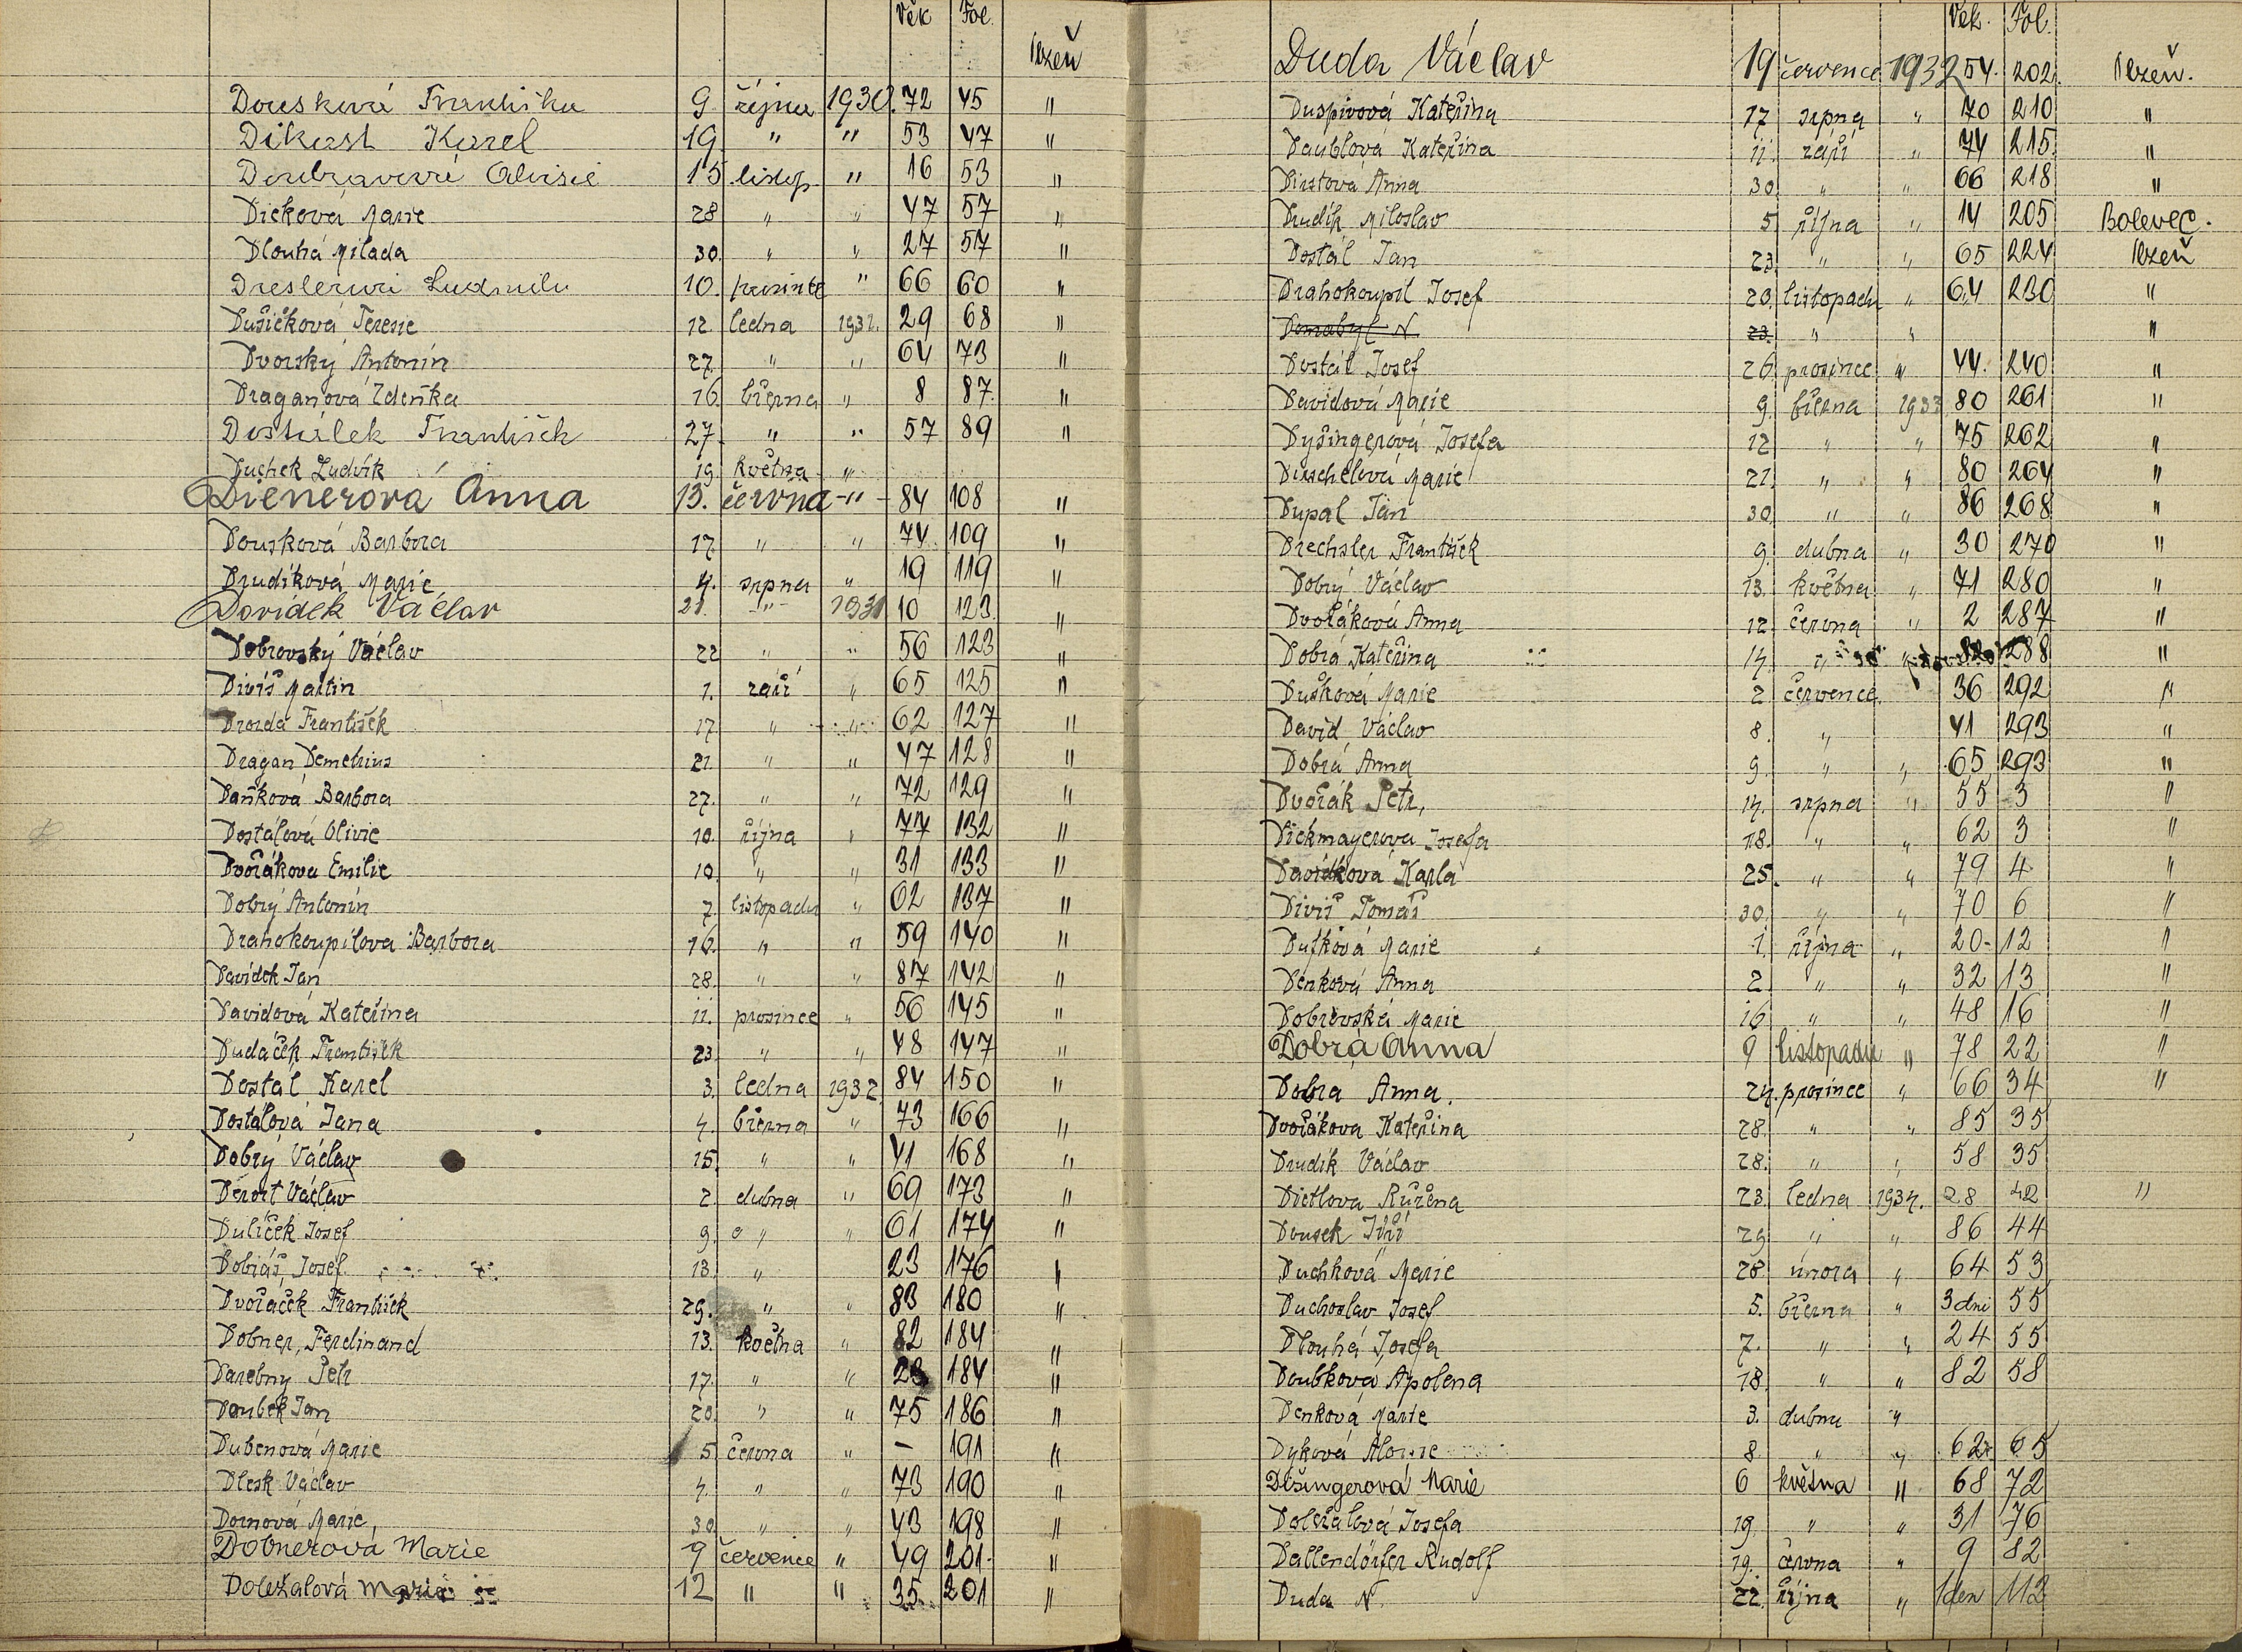 Věk Fol.
Plzeň
Dousková Františka 9. října 1930. 72 45 "
Dikast Karel 19. " " 53 47 "
Doubravová Aloisie 15. listop. " 16 53 "
Dicková Marie 28 " " 47 57 "
Dlouhá Milada 30. " " 27 57 "
Dreslerová Ludmila 10. prosince " 66 60 "
Dušičková Teresie 12. ledna 1931. 29 68 "
Dvorský Antonín 27. " " 64 73 "
Draganová Zdeňka 16. března " 8 87. "
Dostálek František 27. " " 57 89 "
Duchek Ludvík 19. května "
Dienerová Anna 13. června " 84 108 "
Dousková Barbora 17. " " 74 109 "
Drudíková Marie 4. srpna " 19 119 "
Davídek Václav 21. " 1931 10 123. "
Dobrovský Václav 22 " " 56 123 "
Diviš Martin 1. září " 65 125 "
Drozda František 17 " " 62 127 "
Dragan Demetrius 21. " " 47 128 "
Daňková Barbora 27. " " 72 129 "
Dostálová Olivie 10. října " 77 132 "
Dvořáková Emilie 10. " " 31 133 "
Dobrý Antonín 7. listopadu " 62 137 "
Drahokoupilova Barbora 16. " " 59 140 "
Davídek Jan 28. " " 87 142 "
Davidová Kateřina 11. prosince " 56 145 "
Dudáček František 23. " " 48 147 "
Dostál Karel 3. ledna 1932. 84 150 "
Dostálová Jana 4. března " 73 166 "
Dobrý Václav 15. " " 41 168 "
Derort Václav 2. dubna " 69 173 "
Dulíček Josef 9. " " 61 174 "
Dobiáš Josef 13. " 23 176 "
Dvořáček František 29. " " 83 180 "
Dobner, Ferdinand 13. května " 82 184 "
Darebny Petr 17. " " 28 184 "
Doubek Jan 20. " " 75 186 "
Dubenová Marie 5 června " – 191 "
Dlesk Václav 4. " " 73 190 "
Dornová Marie 30. " " 43 198 "
Dobnerová Marie 9 července " 49 201. "
Doležalová Marie 12 " " 35 201 "
Věk. Fol.
Duda Václav 19 července 1932 54. 202. Plzeň.
Duspivová Kateřina 17 srpna " 70 210 "
Daublová Kateřina 11. září " 74 215. "
Dirstová Anna 30. " " 66 218 "
Drudík Miloslav 5 října " 14 205 Bolevec.
Dostál Jan 23. " " 65 224 Plzeň
Drahokoupil Josef 20. listopadu " 64 230 "
Domabyl N 23. " " "
Dostál Josef 26. prosince " 44. 240 "
Davidová Marie 9. března 1933 80 261 "
Dyšingerová Josefa 12 " " 75 262 "
Duschelová Marie 21. " " 80 264 "
Dupal Jan 30. " " 86 268 "
Drechsler František 9. dubna " 30 270 "
Dobrý Václav 13. května " 71 280 "
Dvořáková Anna 12. června " 2 287 "
Dobrá Kateřina 14. " " 82 288 "
Dušková Marie 2 července " 36 292 "
David Václav 8. " 41 293 "
Dobrá Anna 9. " " 65 293 "
Dvořák Petr, 14. srpna " 55 3 "
Dickmayerova Josefa 18. " " 62 3 "
Davídková Karla 25. " " 79 4 "
Diviš Tomáš 30. " " 70 6 "
Dufková Marie 1. října " 20 12 "
Denková Anna 2. " " 32 13 "
Dobrovská Marie 16 " " 48 16 "
Dobrá Anna 9 listopadu " 78 22 "
Dobra Anna. 24. prosince " 66 34 "
Dvořákova Kateřina 28. " " 85 35
Drudík Václav 28. " " 58 35
Dietlova Růžena 23. ledna 1934. 28 42 "
Dousek Jiří 29. " " 86 44
Duchková Marie 28. února " 64 53
Duchoslav Josef 5. března " 3 dni 55
Dlouhá Josefa 7. " " 24 55
Doubkova Apolena 18. " " 82 58
Denková Marie 3. dubna "
Dyková Aloisie 8. " " 62. 65
Dišingerová Marie 6 května " 68 72
Doležalová Josefa 19. " " 31 76
Dallendörfer Rudolf 19. června " 9 82
Duda N. 22. října " 1 den 112